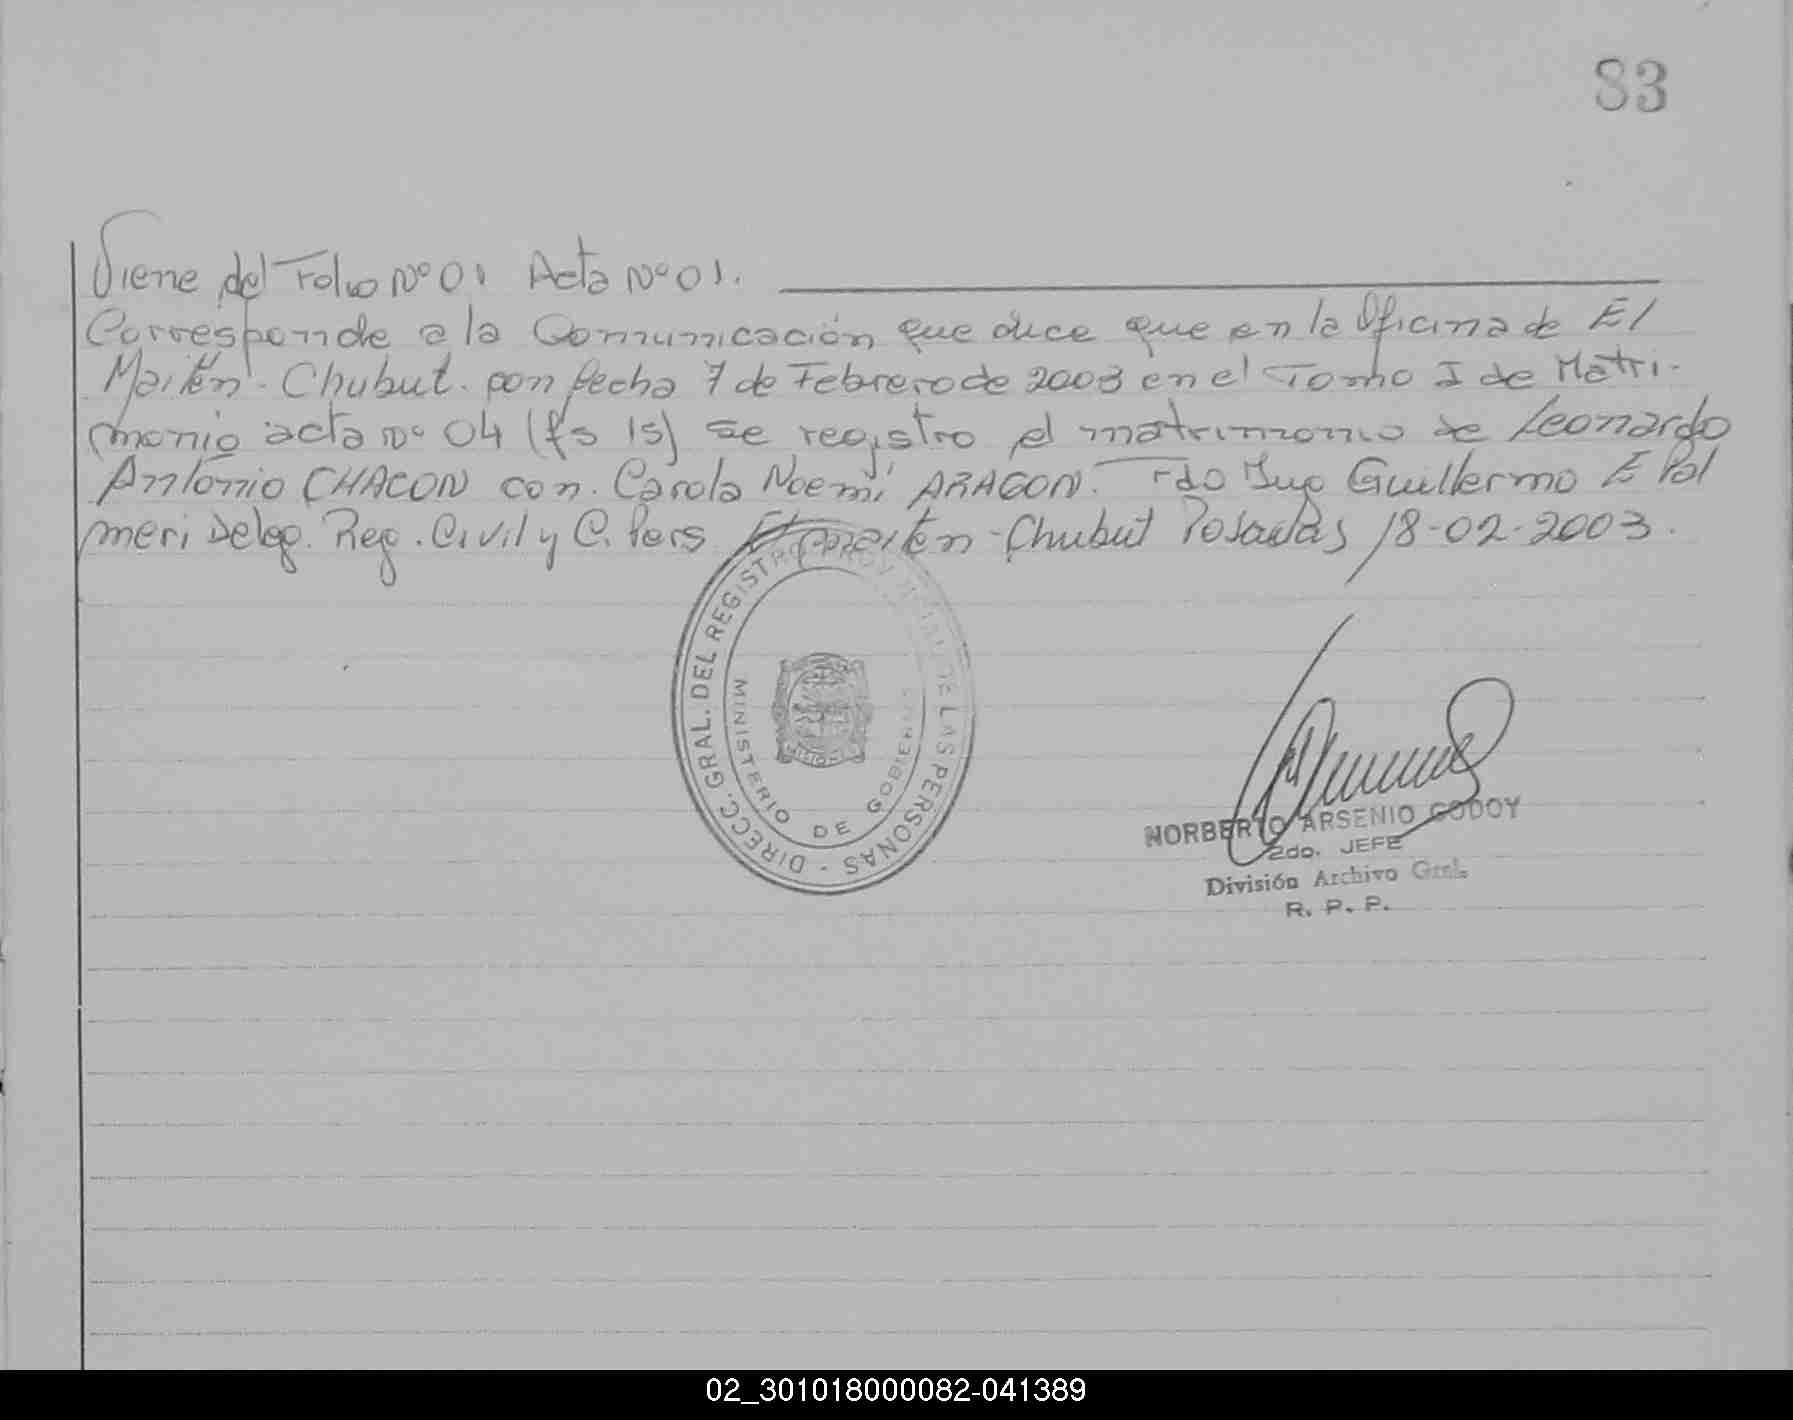 83
Viene del Folio Nº 01 Acta Nº 01.
Corresponde a la Comunicación que dice que en la Oficina de El
Maitén - Chubut. con fecha 7 de Febrero de 2003 en el Tomo I de Matri-
monio acta nº 04 (fs 15) se registro el matrimonio de Leonardo
Antonio CHACON con. Carola Noemí ARAGON. Fdo Guillermo E Pal
meri Deleg. Reg. Civil y C. Pers. El Maitén - Chubut Posadas 18-02-2003.
DIRECC. GRAL. DEL REGISTRO PROVINCIAL DE LAS PERSONAS -
MINISTERIO DE GOBIERNO
MISIONES
NORBERTO ARSENIO GODOY
2do. JEFE
División Archivo Gral.
R. P. P.
02_301018000082-041389